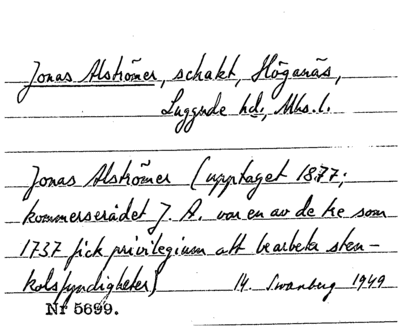 Jonas Alströmer, schakt, Höganäs,
Luggude hd., Mhs. l.
Jonas Alströmer (upptaget 1877;
kommerserådet J. A. var en av de tre som
1737 fick privilegium att bearbeta sten-
kolsfyndigheter)
14. Swanberg 1949
Nr 5699.